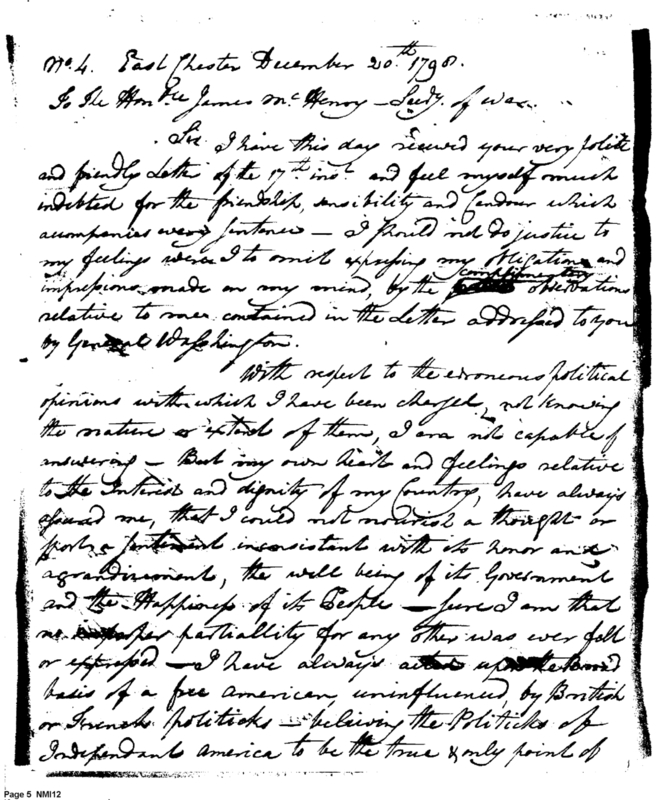 No. 4. East Chester December 20th 1798.
To The Honble James McHenry - Secty. of War.
Sir I have this day received your very polite
and friendly Letter of the 17th inst. and feel myself much
indebted for the friendship, sensibility and Candour which
acompanies every sentence - I should not do justice to
my feelings were I to omit expressing my obligations and
impressions made on my mind, by the complimentary observations
relative to me contained in the Letter addressed to you
by General Washington.
With respect to the erroneous political
opinions with which I have been charged, not knowing
the nature or extent of them, I am not capable of
answering - But my own heart and feelings relative
to the Interest and dignity of my Country, have always
assured me, that I could not nourish a thought or
a sentiment inconsistant with its honor and
agrandizement, the well being of its Government
and the Happiness of its People - sure I am that
no improper partiallity for any other was ever felt
or expressed - I have always acted upon the broad
basis of a free American, uninfluenced by British
or French politicks - believing the Politicks of
Independant America to be the true & only point of
Page 5 NMI12